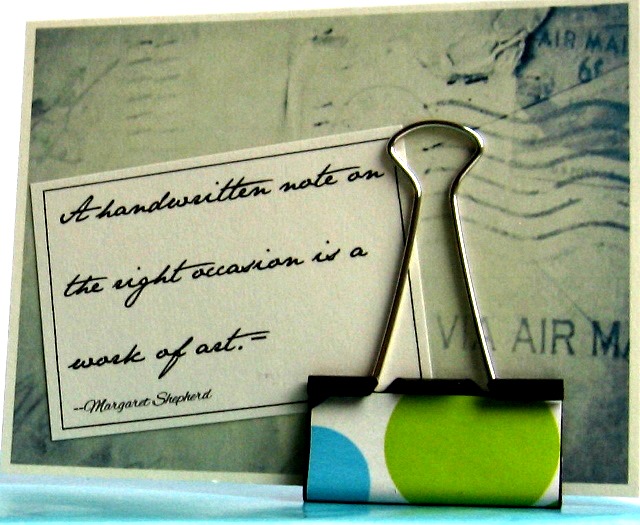 AIR MAI
6¢
A handwritten note on
the right occasion is a
work of art.=
--Margaret Shepherd
VIA AIR MA